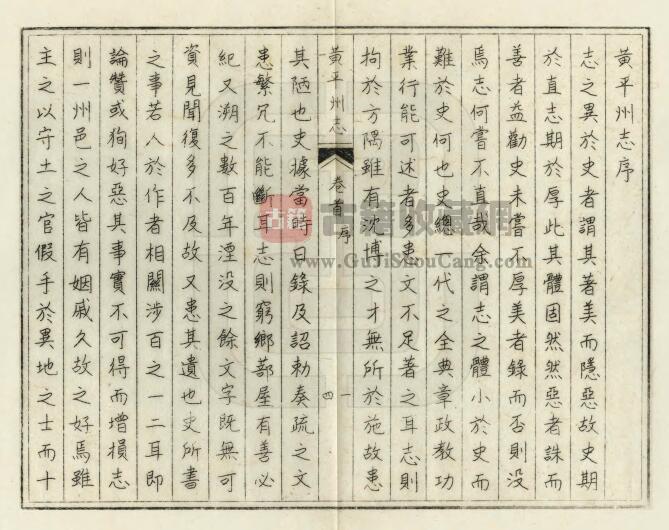 黃平州志序
志之異於史者謂其著美而隱惡故史期
於直志期於厚此其體固然然惡者誅而
善者益勸史未嘗不厚美者錄而否則没
焉志何嘗不直哉余謂志之體小於史而
難於史何也史總一代之全典章政教功
業行能可述者多患文不足著之耳志則
拘於方隅雖有沈博之才無所於施故患
黃平州志 卷首 序 一 四
其陋也史據當時日錄及詔勅奏疏之文
患繁冗不能斷耳志則窮鄉蔀屋有善必
紀又溯之數百年湮没之餘文字既無可
資見聞復多不及故又患其遺也史所書
之事若人於作者相關涉百之一二耳即
論贊或狥好惡其事實不可得而增損志
則一州邑之人皆有姻戚久故之好焉雖
主之以守土之官假手於異地之士而十
古籍 古籍收藏网
www.GuJiShouCang.com